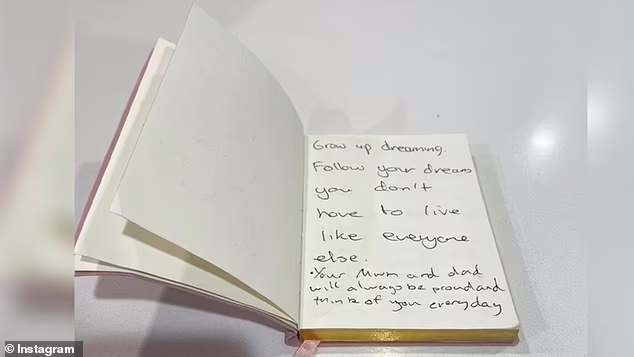 Grow up dreaming.
Follow your dreams
you don't
have to live
like everyone
else.
•Your Mum and dad
will always be proud and
think of you everyday
© Instagram